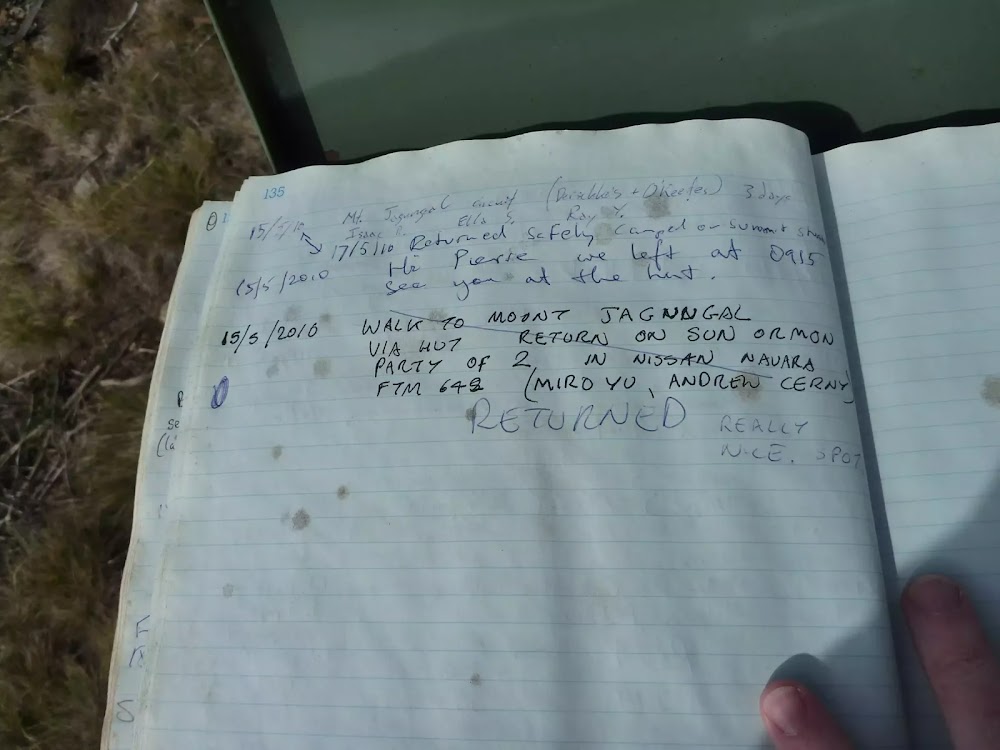 135
15/5/10 Mt. Jagungal circuit (Derschko's + O'Keefes) 3 days
Isaac R. Ella S. Ray Y.
17/5/10 Returned safely camped on summit
15/5/2010 Hi Pierre we left at 0915
see you at the hut.
15/5/2010 WALK TO MOUNT JAGNNGAL
VIA HUT RETURN ON SUN OR MON
PARTY OF 2 IN NISSAN NAVARA
FTM 649 (MIRO YU, ANDREW CERNY)
RETURNED REALLY
NICE. SPOT